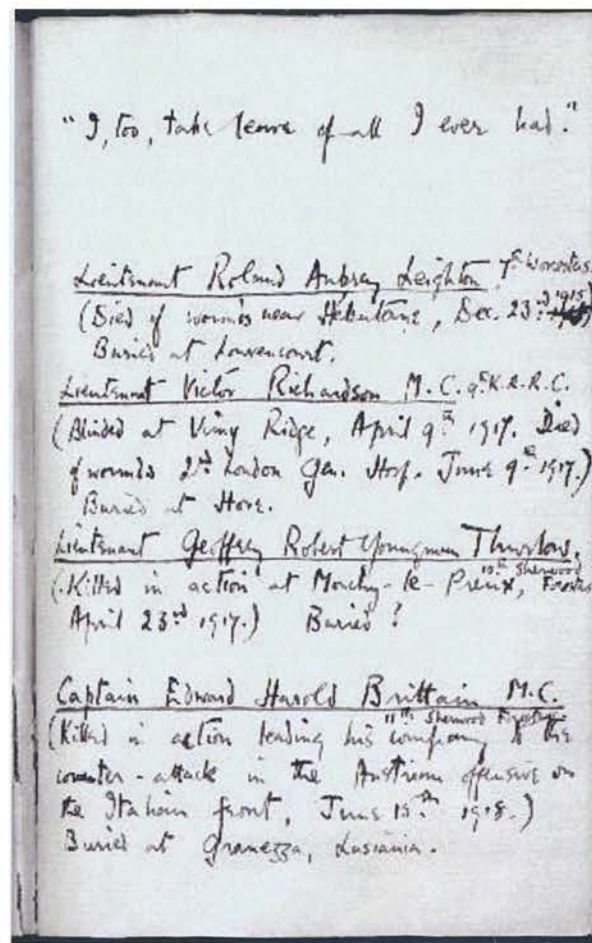 "I, too, take leave of all I ever had."
Lieutenant Roland Aubrey Leighton, 7th Worcesters.
(Died of wounds near Hébuterne, Dec. 23rd 1915)
Buried at Louvencourt.
Lieutenant Victor Richardson M.C. 9th K.R.R.C.
(Blinded at Vimy Ridge, April 9th 1917. Died
of wounds 2nd London Gen. Hosp. June 9th 1917.)
Buried at Hove.
Lieutenant Geoffrey Robert Youngman Thurlow.
10th Sherwood Foresters
(Killed in action at Monchy-le-Preux,
April 23rd 1917.) Buried?
Captain Edward Harold Brittain M.C.
11th Sherwood Foresters
(Killed in action leading his company to the
counter-attack in the Austrian offensive on
the Italian front, June 15th 1918.)
Buried at Granezza, Lusiania.